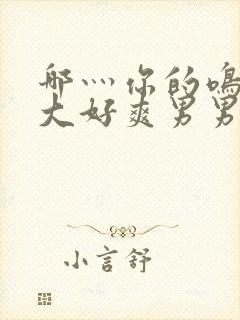 哪灬你的鸣
大好爽男男
小言舒